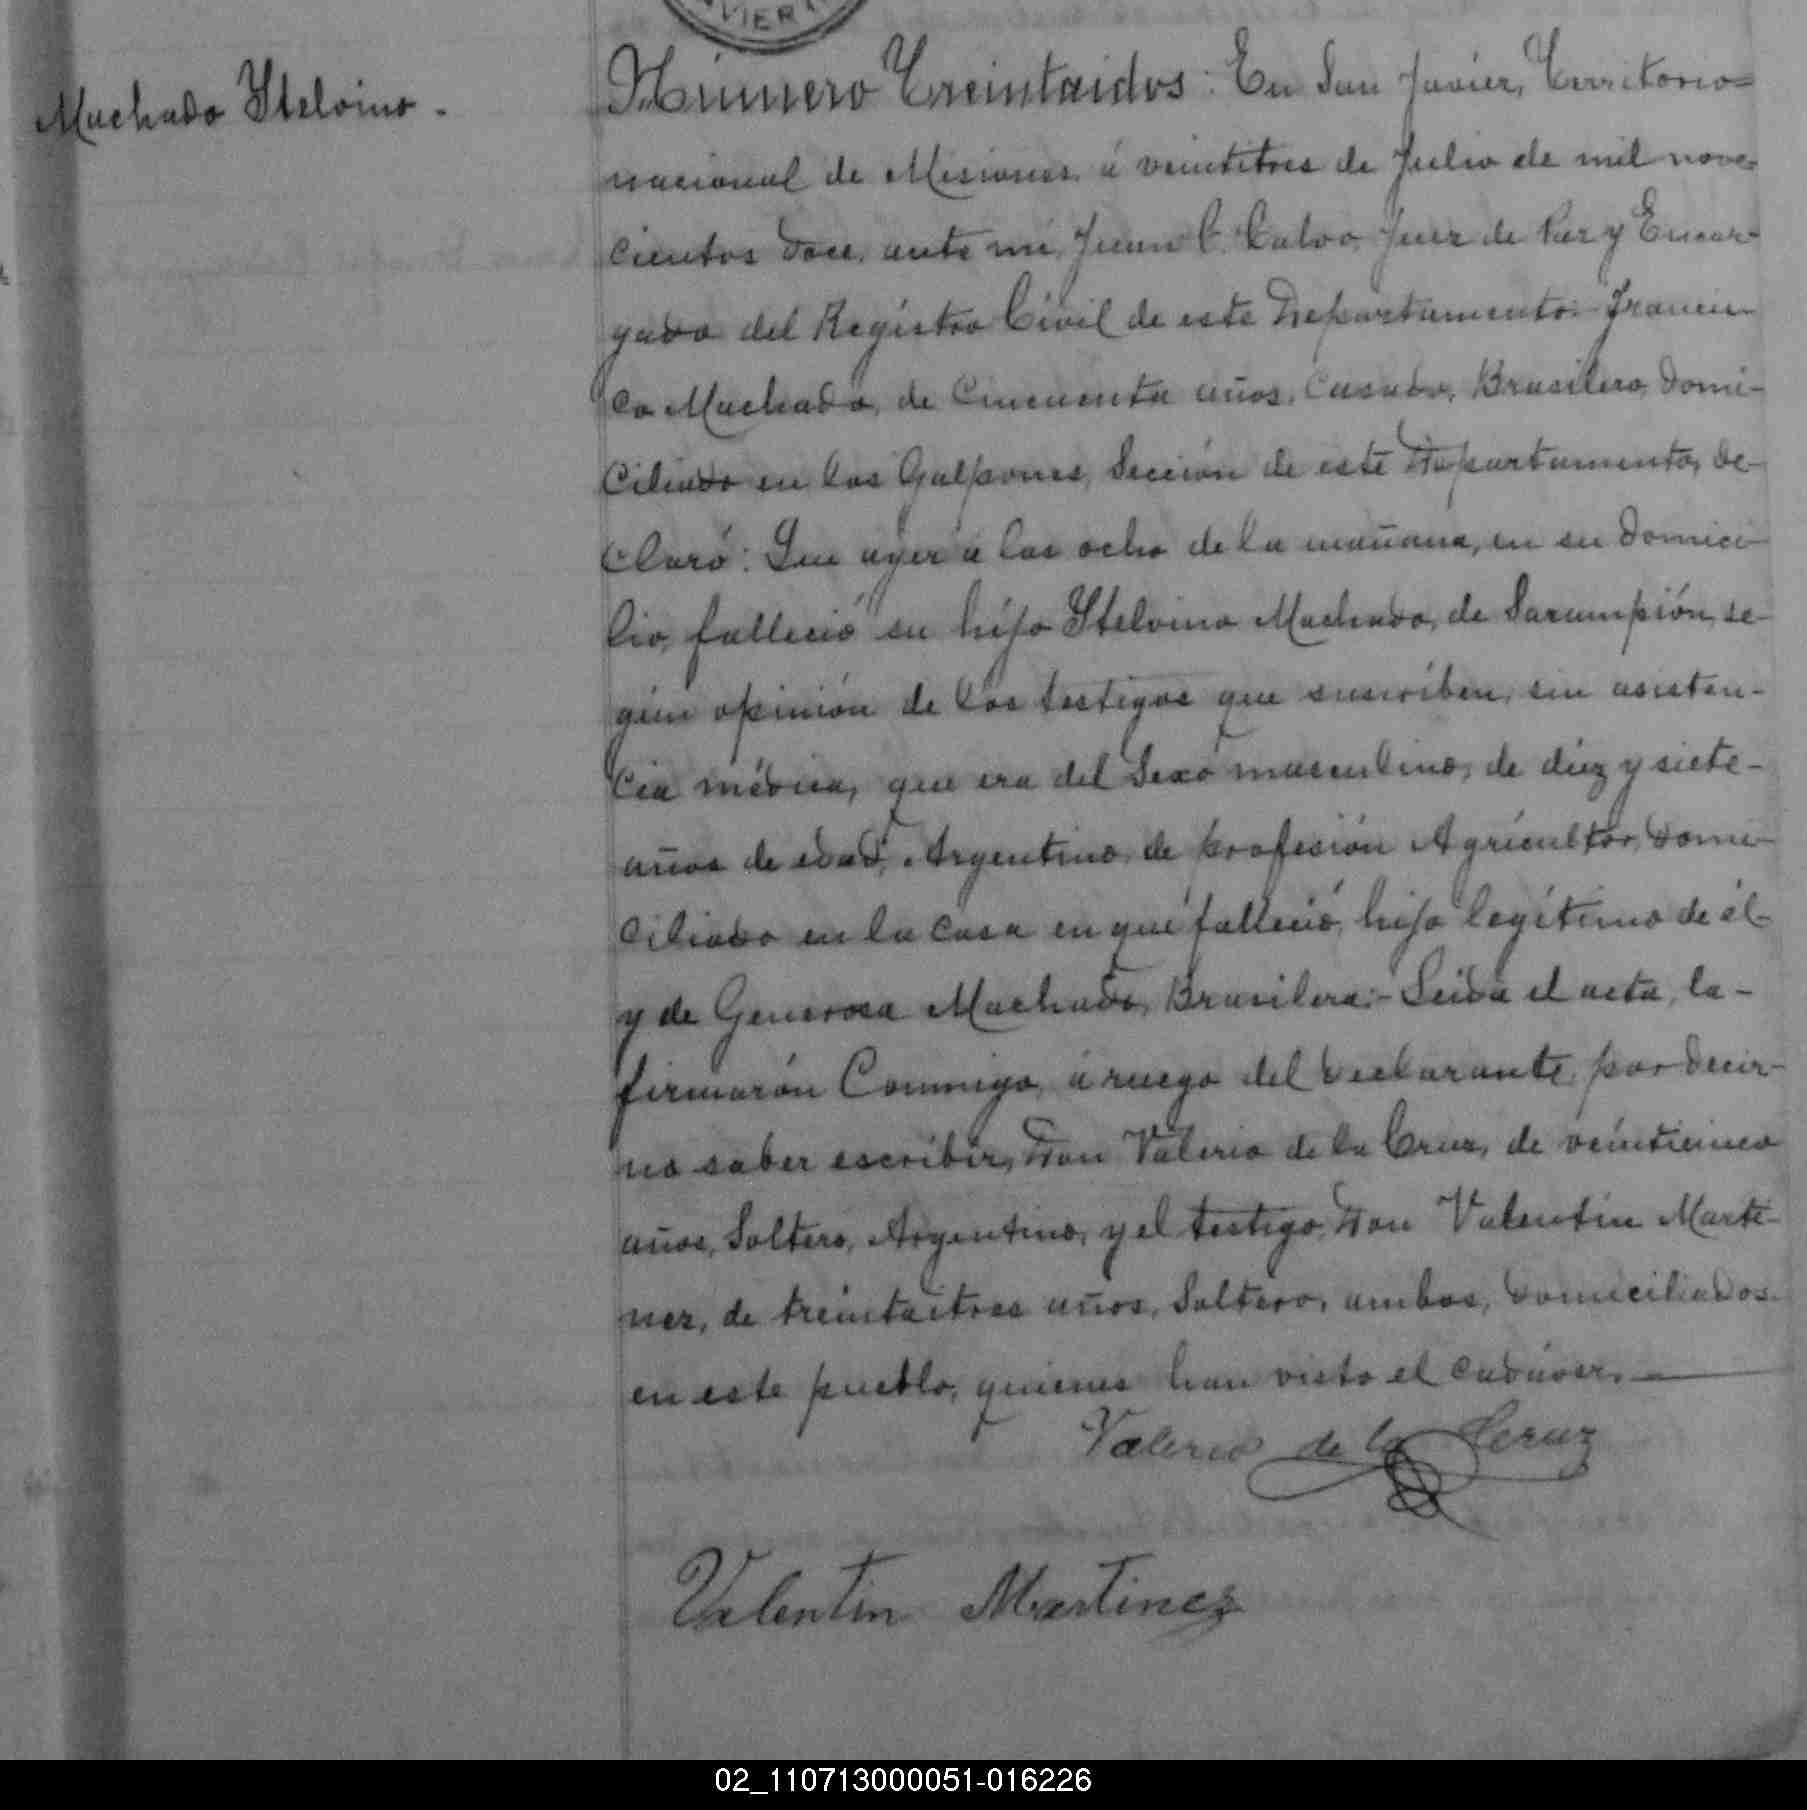 VIER
Machado Stelvino.
Número Treintaidos: En San Javier, Territorio
nacional de Misiones, á veintitres de Julio de mil nove-
cientos doce, ante mí, Juan C. Calvo, Juez de Paz y Encar-
gado del Registro Civil de este Departamento:- Francis-
co Machado, de Cincuenta años, Casado, Brasilero, domi-
ciliado en los Galpones, Sección de este Departamento, de-
claró: Que ayer á las ocho de la mañana, en su domici-
lio, falleció su hijo Stelvino Machado, de Sarampión, se-
gún opinión de los testigos que suscriben, sin asisten-
cia médica, que era del Sexo masculino, de diez y siete-
años de edad, Argentino, de profesión Agricultor, domi-
ciliado en la Casa en que falleció, hijo legítimo de él-
y de Generosa Machado, Brasilera:- Leida el acta, la-
firmarón Conmigo, á ruego del declarante, por decir-
no saber escribir, Don Valerio de la Cruz, de veinticinco
años, Soltero, Argentino, y el testigo, Don Valentin Marti-
nez, de treintaitres años, Soltero, ambos, domiciliados-
en este pueblo, quienes han visto el cadáver.
Valerio de la Cruz
Valentin Martinez
02_110713000051-016226